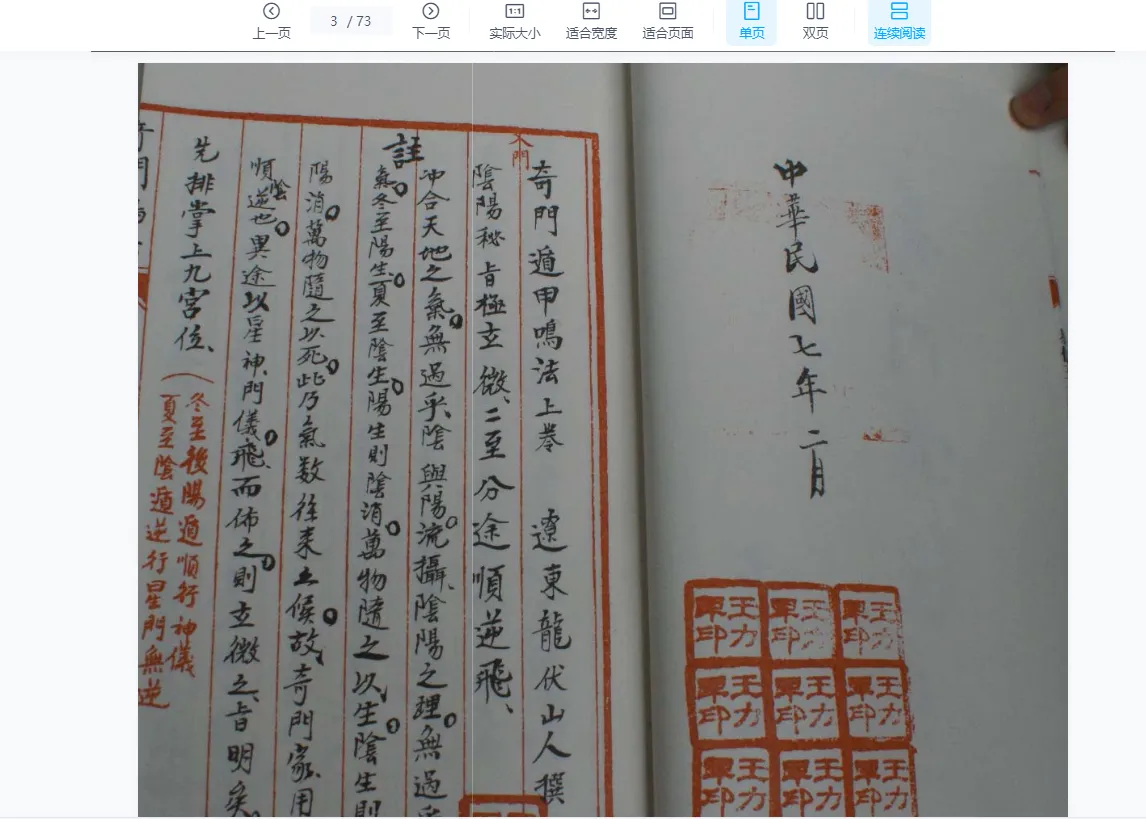 上一页
3 / 73
下一页
1:1
实际大小
适合宽度
适合页面
单页
双页
连续阅读
中華民國七年二月
王力軍印
王力軍印
王力軍印
王力軍印
王力軍印
王力軍印
王力軍印
王力軍印
王力軍印
入門
奇門遁甲鳴法上卷 遼東龍伏山人撰
陰陽秘旨極玄微、二至分途順逆飛、
註
冲合天地之氣無過乎、陰與陽流攝、陰陽之理無過乎
氣冬至陽生夏至陰生陽生則陰消萬物隨之以生陰生則
陽消萬物隨之以死此乃氣数往来之候故、奇門家用
順陰逆也異途以星神、門儀飛、而佈之則玄微之、旨明矣
先排掌上九宮位、
冬至後陽遁順行神儀
夏至陰遁逆行星門無逆